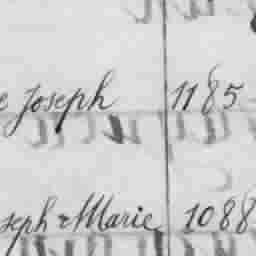 e Joseph 1185
seph & Marie 1088